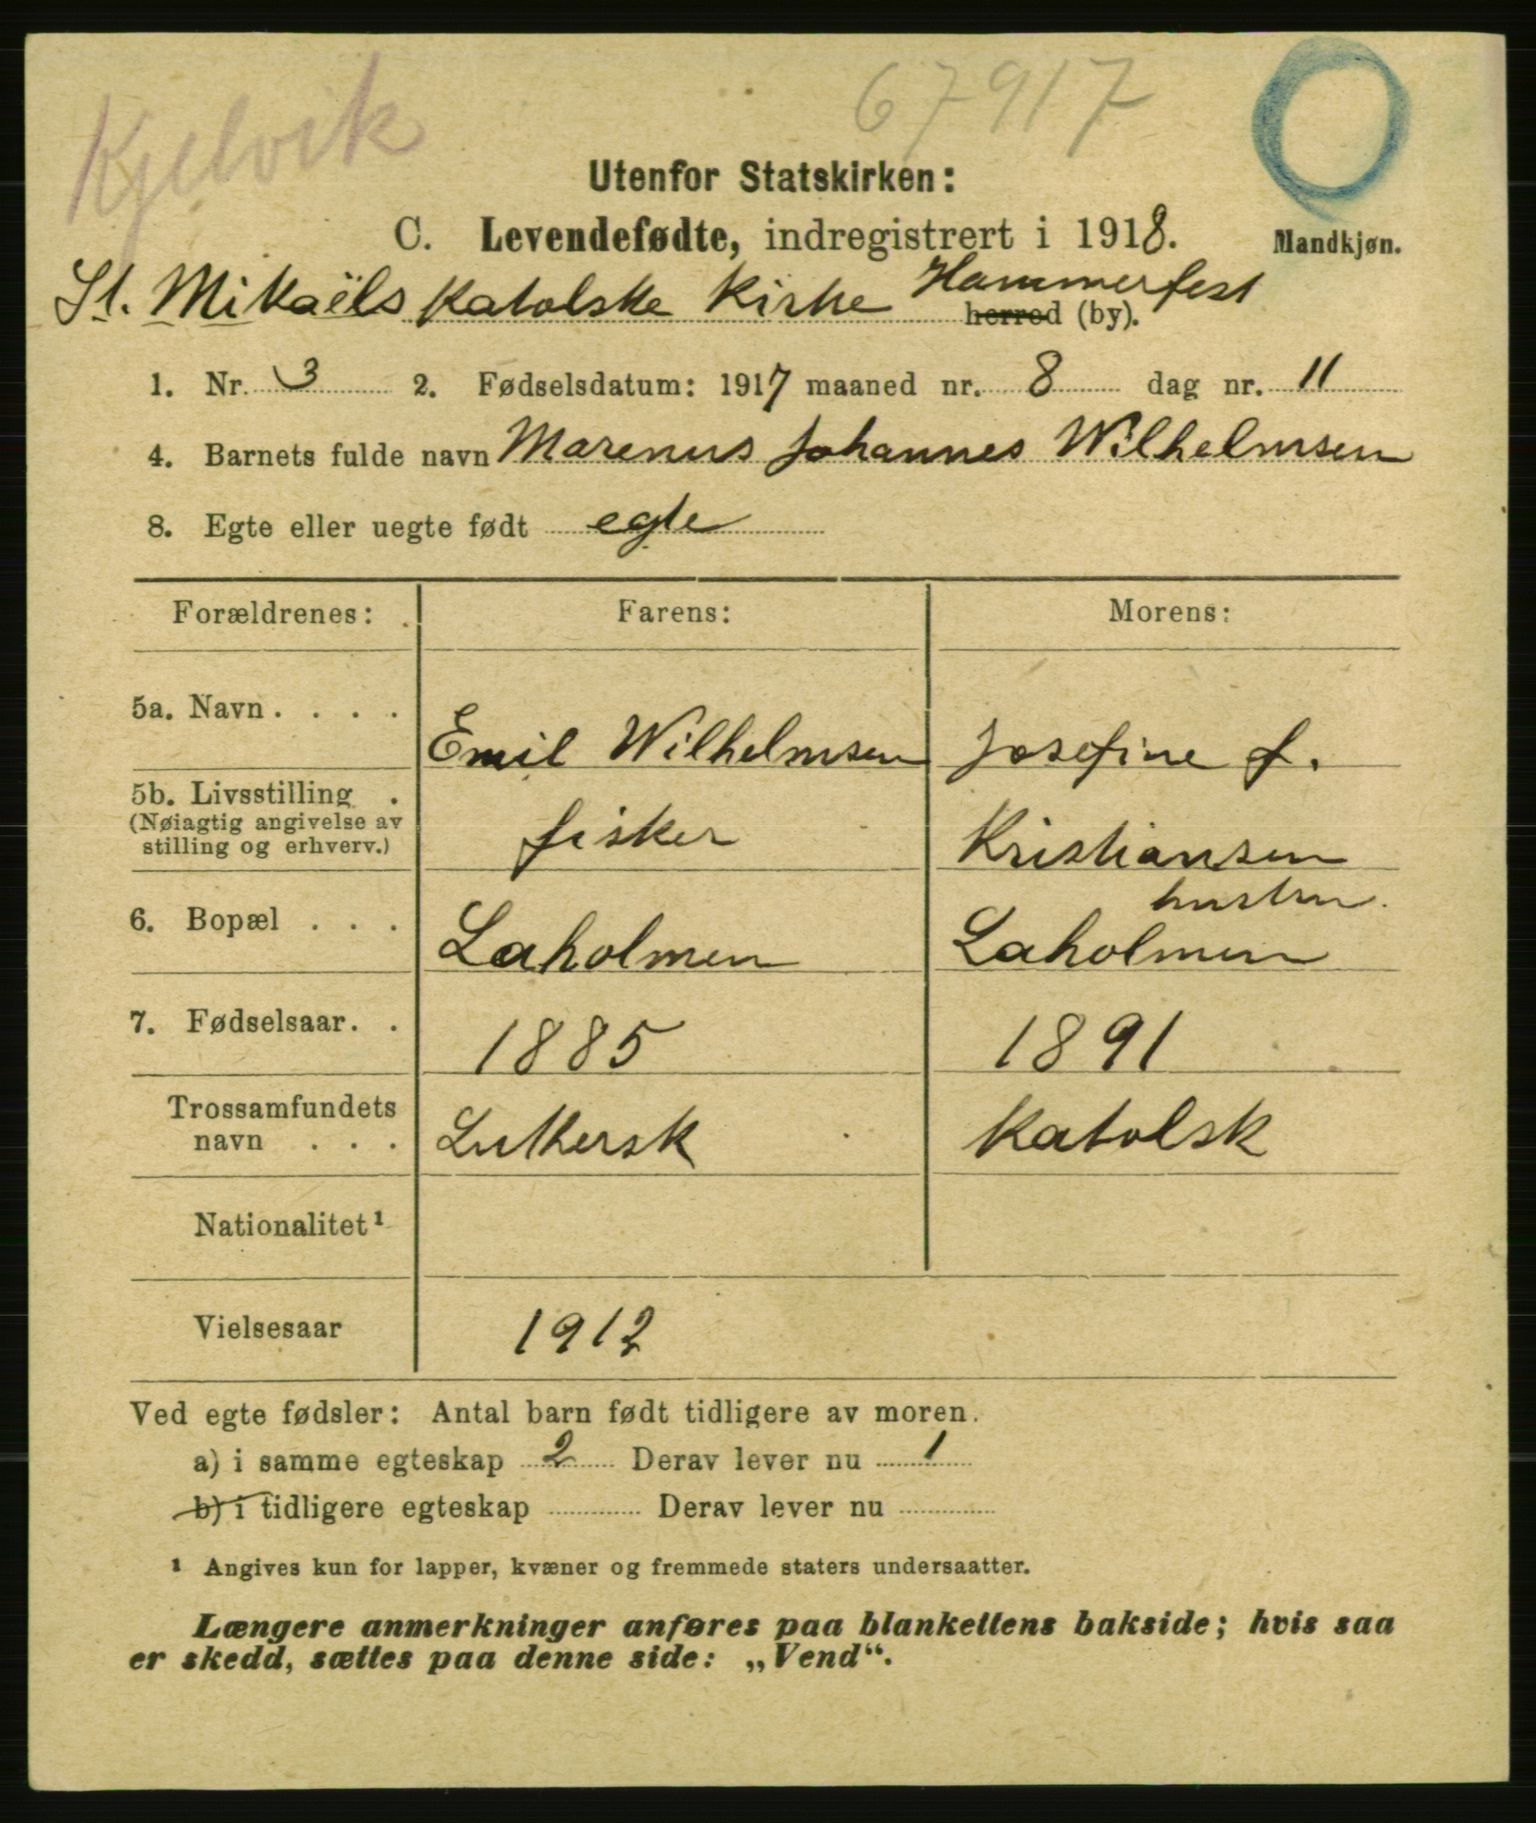 Kjelvik
67917
Utenfor Statskirken:
C. Levendefødte, indregistrert i 1918.
Mandkjøn.
St. Mikaëls katolske Kirke Hammerfest
herred (by).
1. Nr. 3 2. Fødselsdatum: 1917 maaned nr. 8 dag nr. 11
4. Barnets fulde navn Marenus Johannes Wilhelmsen
8. Egte eller uegte født egte
Forældrenes: Farens: Morens:
5a. Navn . . . . Emil Wilhelmsen Josefine f.
5b. Livsstilling . fisker Kristiansen
(Nøiagtig angivelse av
stilling og erhverv.)
hustru.
6. Bopæl . . . Laholmen Laholmen
7. Fødselsaar. . 1885 1891
Trossamfundets
navn . . . Luthersk Katolsk
Nationalitet¹
Vielsesaar 1912
Ved egte fødsler: Antal barn født tidligere av moren.
a) i samme egteskap 2 Derav lever nu 1
b) i tidligere egteskap Derav lever nu
¹ Angives kun for lapper, kvæner og fremmede staters undersaatter.
Længere anmerkninger anføres paa blankettens bakside; hvis saa
er skedd, sættes paa denne side: „Vend“.